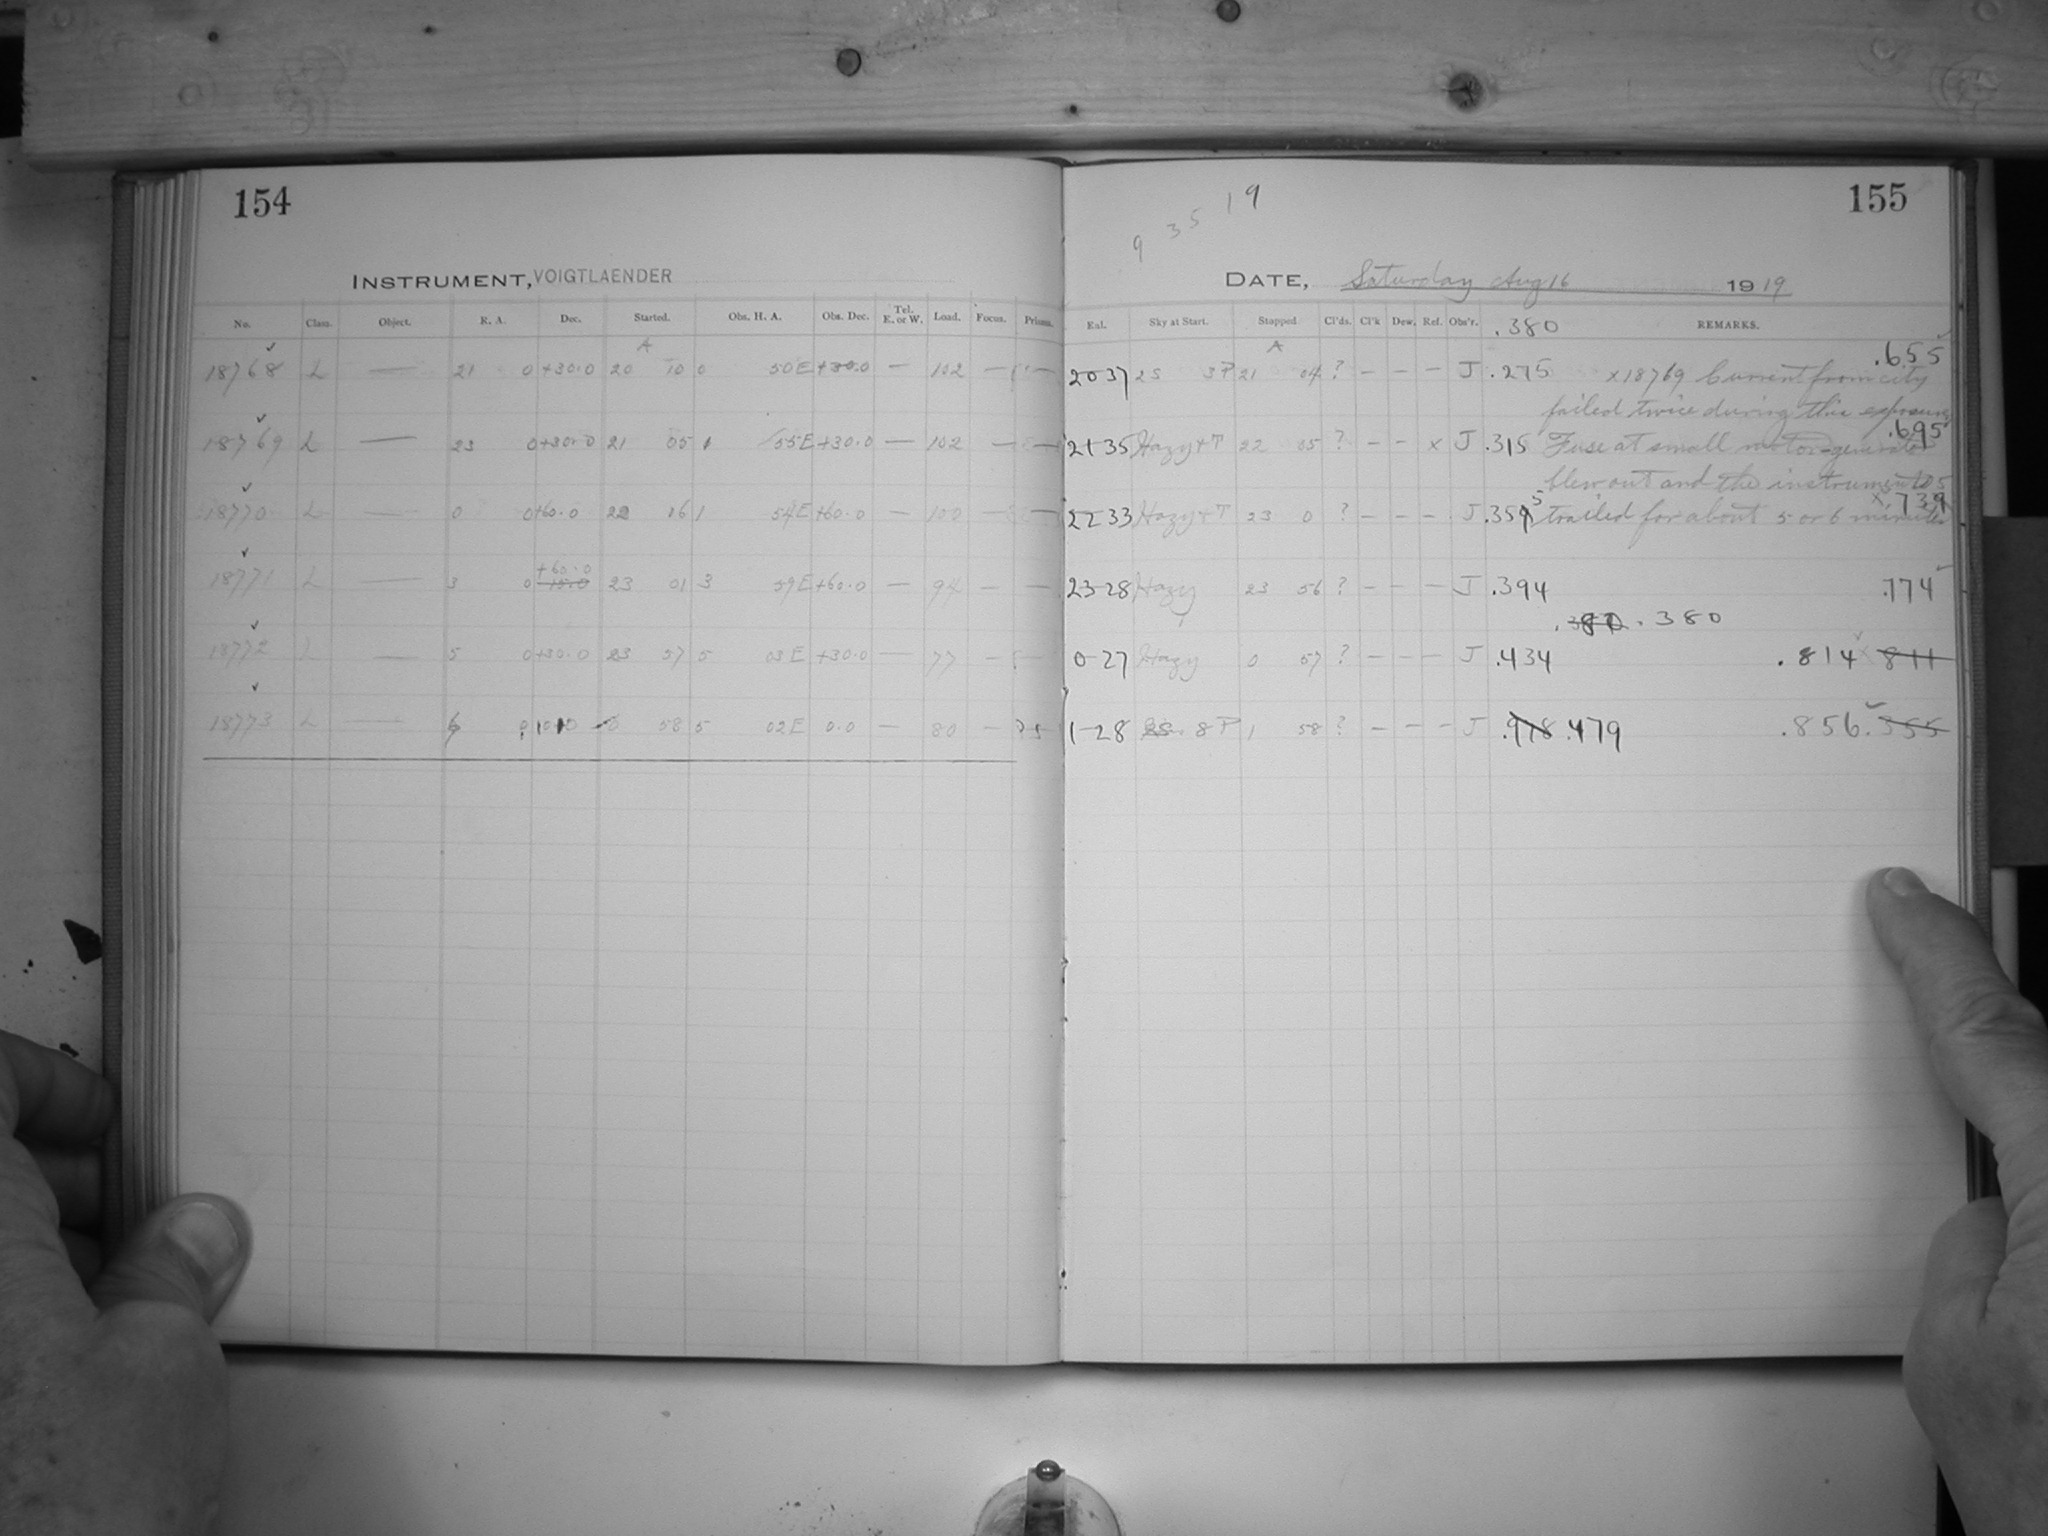 154
INSTRUMENT, VOIGTLAENDER
No. Class. Object. R. A. Dec. Started. Obs. H. A. Obs. Dec. Tel. E. or W. Load. Focus. Prisms.
A
18768 L — 21 0 +30.0 20 10 0 50E +30.0 — 102 —
18769 L — 23 0 +30.0 21 05 1 55E +30.0 — 102 — —
18770 L — 0 0 +60.0 22 16 1 54E +60.0 — 100 — —
18771 L — 3 0 +60.0 23 01 3 59E +60.0 — 94 — —
18772 L — 5 0 +30.0 23 57 5 03E +30.0 — 77 —
18773 L — 6 58 5 02E 0.0 — 80 —
155
9 35 19
DATE, Saturday Aug 16 1919
Exl. Sky at Start. Stopped Cl'ds. Cl'k Dew. Ref. Obs'r. .380 REMARKS.
A
20 37 25 3P 21 04 ? — — — J .275 x18769 Current from city .655
failed twice during this exposure
21 35 Hazy+T 22 05 ? — — x J .315 Fuse at small motor-generator .695
blew out and the instrument
22 33 Hazy+T 23 0 ? — — — J .359 trailed for about 5 or 6 minutes .739
23-28 Hazy 23 56 ? — — — J .394 .774
.380
0-27 Hazy 0 57 ? — — — J .434 .814 811
1-28 8P 1 58 ? — — — J .978 .479 .856 .355